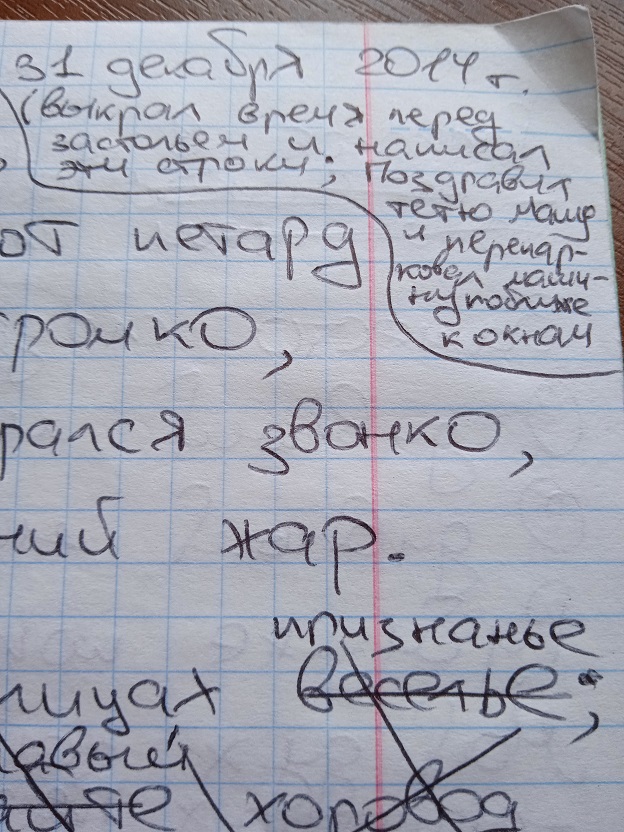 31 декабря 2014 г.
(выкрал время перед
застольем и написал
эти строки; Поздравил
тетю Машу
и перепар-
ковал маши-
ну поближе
к окнам
от петард
громко,
рался звонко,
ний жар.
признанье
лицах веселье;
авый
хоровод